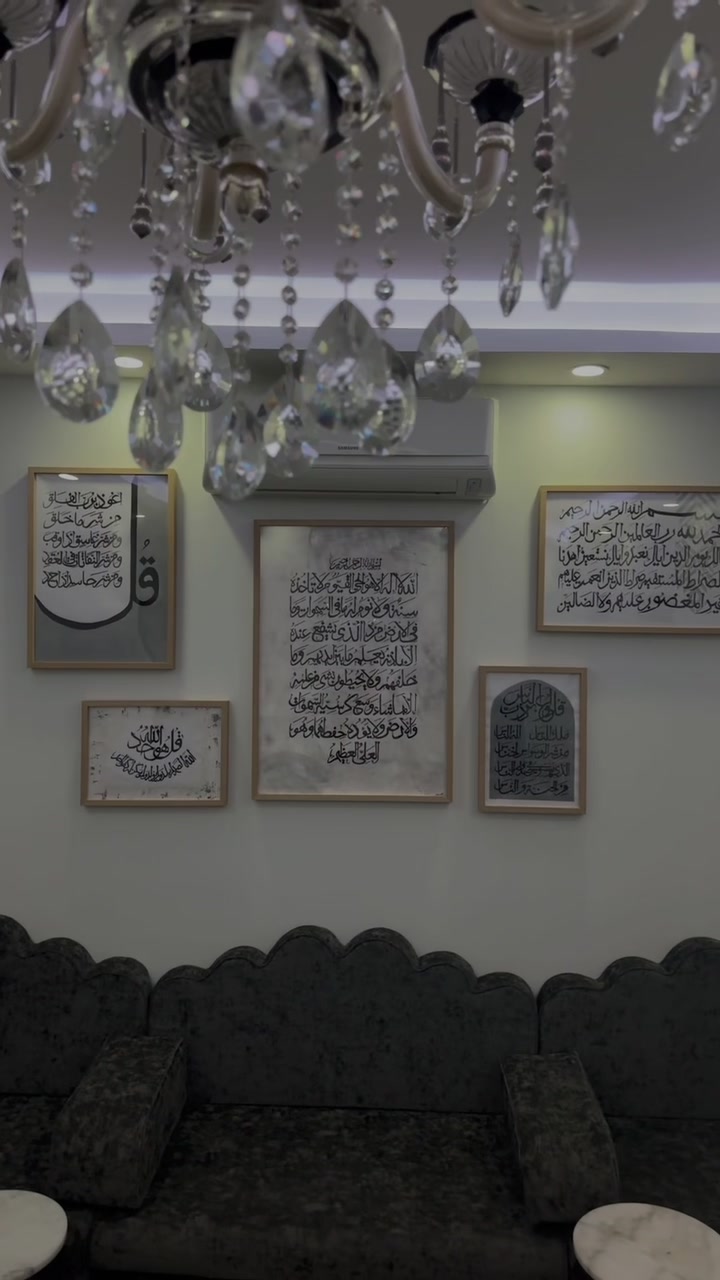 SAMSUNG
أعوذ برب الفلق
من شر ما خلق
ومن شر غاسق إذا وقب
ومن شر النفاثات في العقد
ومن شر حاسد إذا حسد
قل
بسم الله الرحمن الرحيم
الله لا إله إلا هو الحي القيوم لا تأخذه
سنة ولا نوم له ما في السموات وما
في الأرض من ذا الذي يشفع عنده
إلا بإذنه يعلم ما بين أيديهم وما
خلفهم ولا يحيطون بشيء من علمه
إلا بما شاء وسع كرسيه السموات
والأرض ولا يؤده حفظهما وهو
العلي العظيم
بسم الله الرحمن الرحيم
الحمد لله رب العالمين الرحمن الرحيم
يوم الدين إياك نعبد وإياك نستعين اهدنا
الصراط المستقيم صراط الذين أنعمت عليهم
غير المغضوب عليهم ولا الضالين
قل هو الله أحد
قل أعوذ برب الناس
ملك الناس إله الناس
من شر الوسواس الخناس
الذي يوسوس في صدور الناس
من الجنة والناس